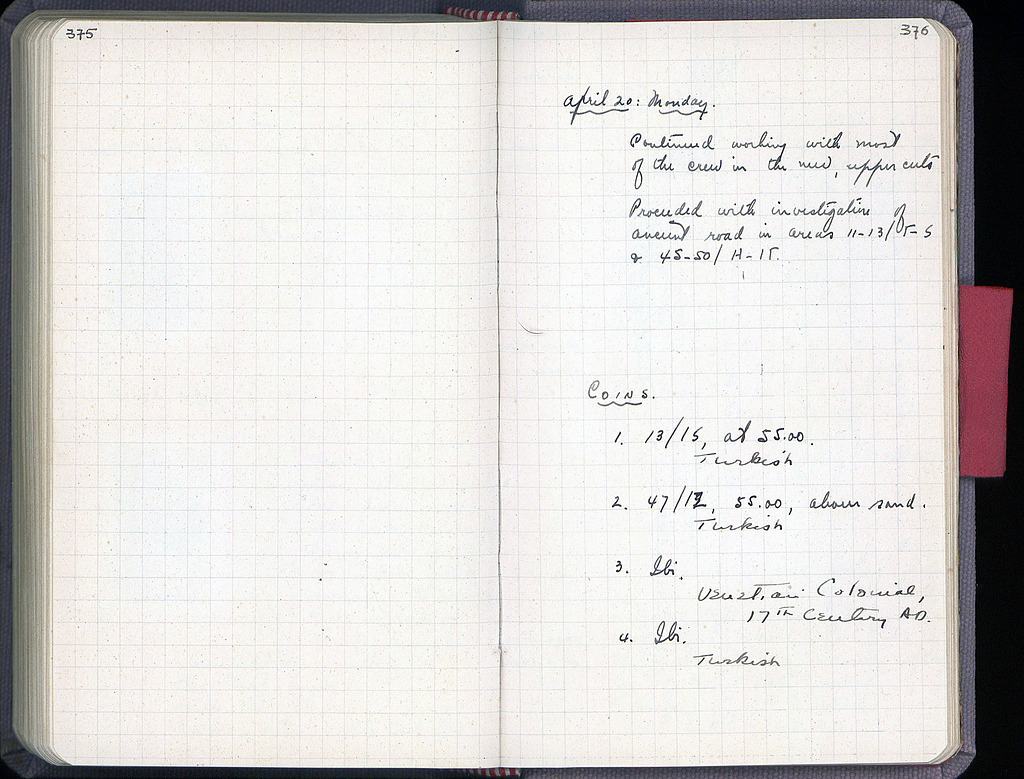 375
376
April 20: Monday.
Continued working with most
of the crew in the new, upper cuts
Proceeded with investigation of
ancient road in areas 11-13/ΙΓ-
& 45-50/ Η-ΙΓ.
Coins.
1. 13/15, at 55.00.
Turkish
2. 47/12, 55.00, above sand.
Turkish
3. Ibi.
Venetian Colonial,
17TH Century AD.
4. Ibi.
Turkish